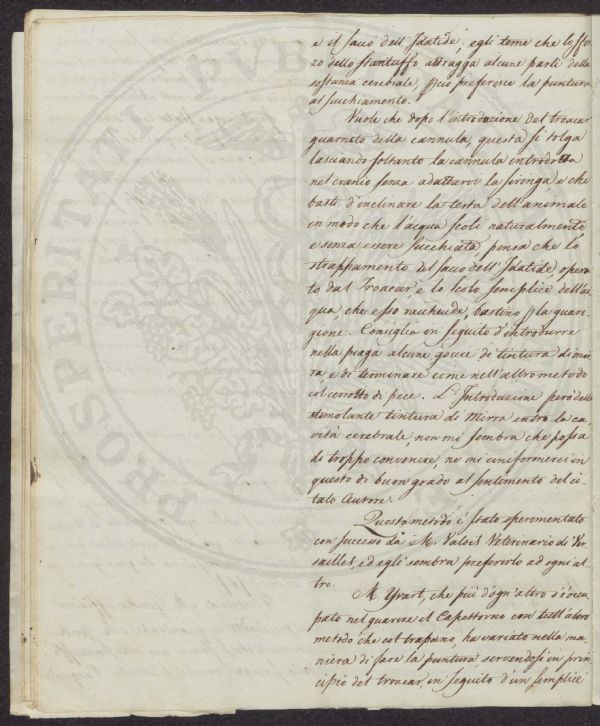 e il sacco dell'Idatide; egli teme che lo sfor
zo dello stantuffo attragga alcune parti della
sostanza cerebrale, p ciò preferisce la puntura
al succhiamento.
Vuole che dopo l'introduzione del troacar
guarnito della cannula, questa si tolga
lasciando soltanto la cannula introdotta
nel cranio senza adattarvi la siringa, e che
basti d'inclinare la testa dell'animale
in modo che l'acqua scoli naturalmente,
e senza essere succhiata, pensa che lo
strappamento del sacco dell'Idatide, opera
to dal Troacar, e lo scolo semplice dell'ac
qua, che esso racchiude, bastino p la guari
gione. Consiglia in seguito d'introdurre
nella piaga alcune gocce di tintura di mir
ra e di terminare come nell'altro metodo
col cerotto di pece. L'Introduzione però dello
stimolante tintura di Mirra entro la ca
vità cerebrale, non mi sembra che possa
di troppo convenire, ne mi uniformerei in
questo di buon grado al sentimento del ci
tato Autore.
Questo metodo è stato sperimentato
con successo da M. Valois Veterinario di Ver
sailles, ed egli sembra preferirlo ad ogni al
tro.
M. Yvart, che più d'ogn'altro s'è occu
pato nel guarire il Capostorno con tutt'altro
metodo che col trapano, ha variato nella ma
niera di fare la puntura servendosi in prin
cipio del troacar, in seguito d'un semplice
PROSPERITATI PVB